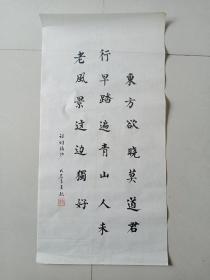 東方欲曉莫道君
行早踏遍青山人未
老風景這边獨好